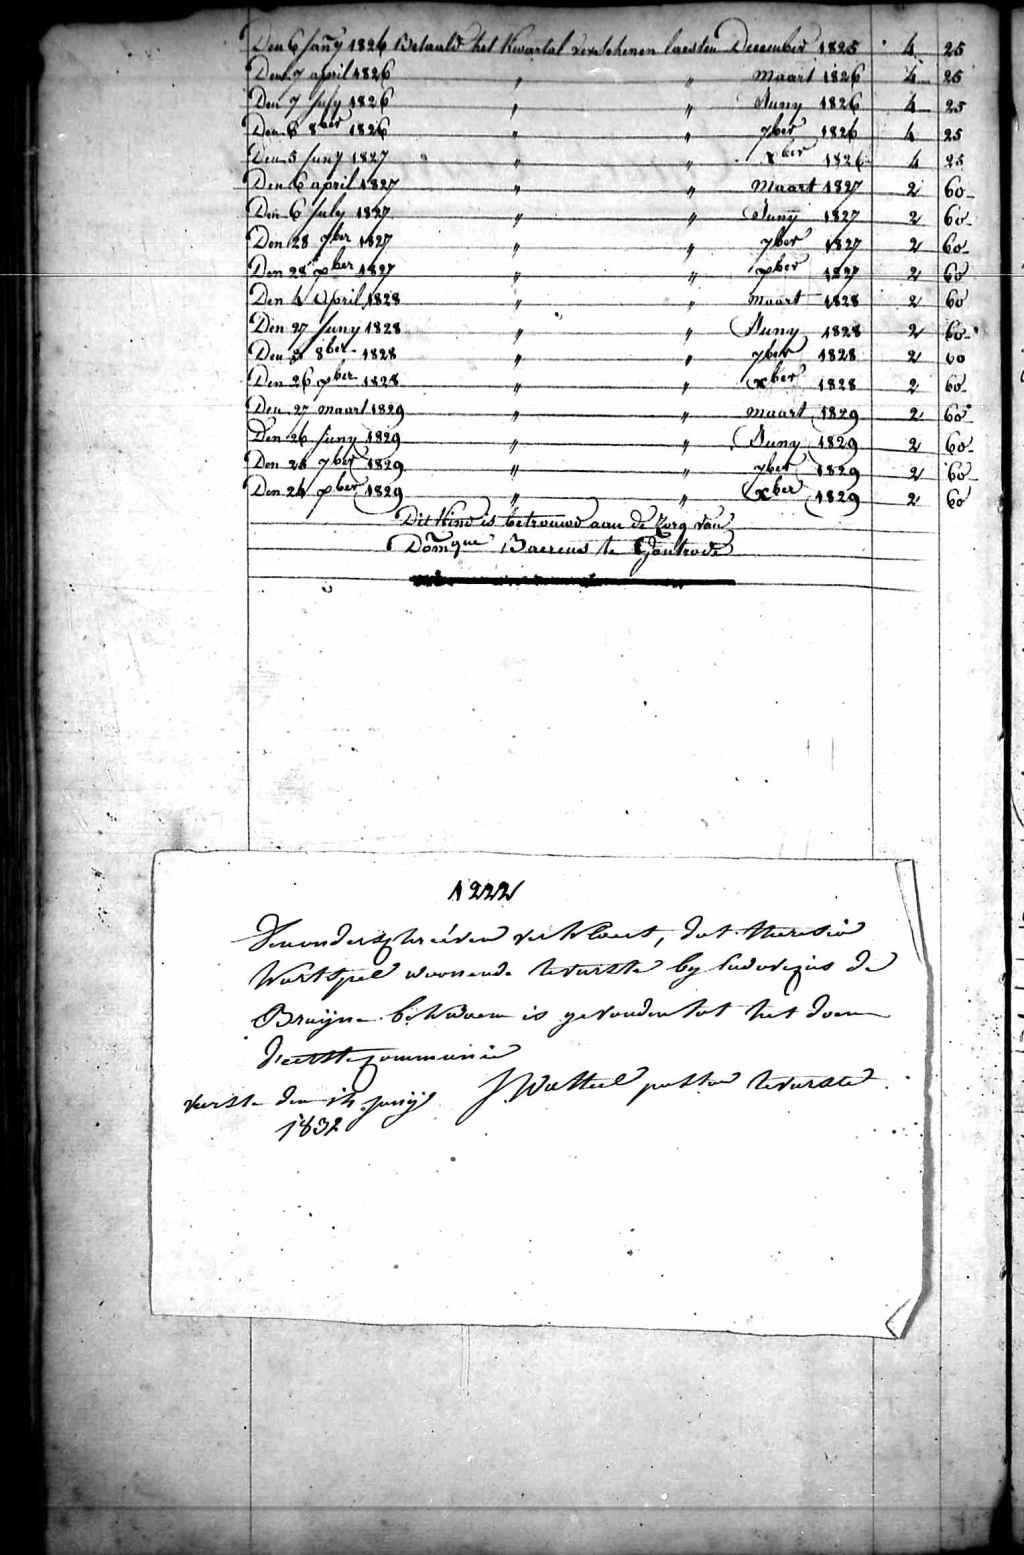 Den 6 Jany 1826 Betaald het Kwartal verschenen laesten December 1825 4 25
Den 7 april 1826 " " maart 1826 4 25
Den 7 July 1826 " " Juny 1826 4 25
Den 6 8ber 1826 " " 7ber 1826 4 25
Den 5 Juny 1827 " " xber 1826 4 25
Den 6 april 1827 " " maart 1827 2 60
Den 6 July 1827 " " Juny 1827 2 60
Den 28 7ber 1827 " " 7ber 1827 2 60
Den 28 xber 1827 " " xber 1827 2 60
Den 4 April 1828 " " maart 1828 2 60
Den 27 Juny 1828 " " Juny 1828 2 60
Den 8ber 1828 " " 7ber 1828 2 60
Den 26 xber 1828 " " xber 1828 2 60
Den 27 maart 1829 " " maart 1829 2 60
Den 26 Juny 1829 " " Juny 1829 2 60
Den 7ber 1829 " " 7ber 1829 2 60
Den 24 xber 1829 " " xber 1829 2 60
Dit Kind is betrouwd aan de Zorg van
Domque Baerens te Gontrode
1222
Denonderschreéven verklaert, dat theresia
woonende te vurste by Ludovicus de
Bruijne bekwaem is gevonden tot het doen
d'eerste communie
vurste den 14 Junij J Watteel pastor te vurste
1832